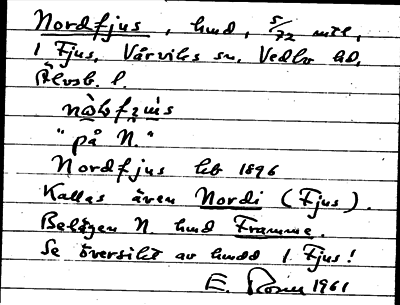 Nordfjus, hmd, 5/72 mtl,
1 Fjus, Vårviks sn. Vedbo hd,
Älvsb. l.
"på N."
Nordfjus hb 1896
Kallas även Nordi (Fjus).
Belägen N. hmd Framme.
Se översikt av hmdd 1 Fjus!
E. 1961